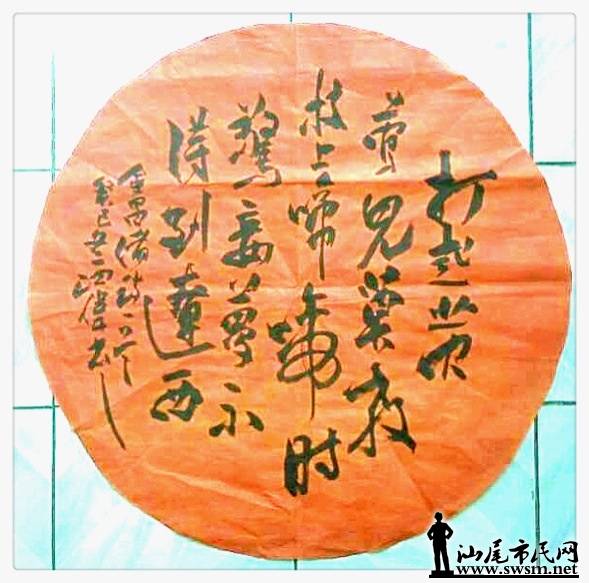 打起黄
莺兒莫教
枝上啼啼时
驚妾夢不
得到遼西
金昌緒詩一首
癸巳
汕尾市民网
www.swsm.net